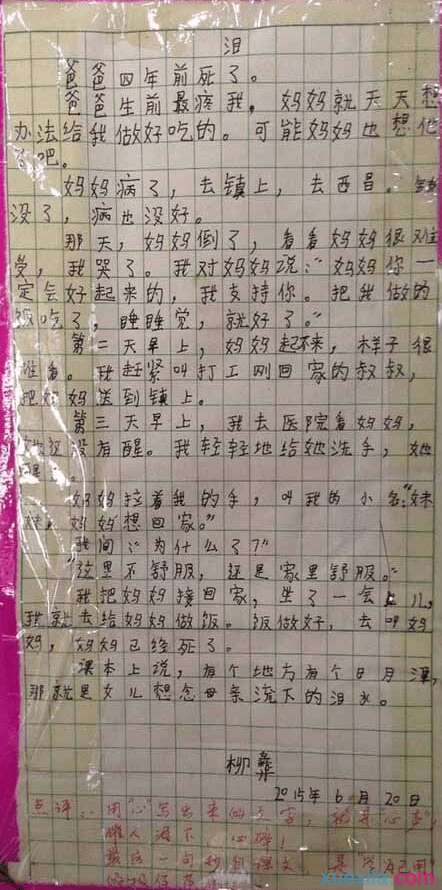 泪
爸爸四年前死了。
爸爸生前最疼我，妈妈就天天想
办法给我做好吃的。可能妈妈也想他
了吧。
妈妈病了，去镇上，去西昌。钱
没了，病也没好。
那天，妈妈倒了，看看妈妈很难
受，我哭了。我对妈妈说：“妈妈你一
定会好起来的，我支持你。把我做的
饭吃了，睡睡觉，就好了。”
第二天早上，妈妈起不来，样子很
难看。我赶紧叫打工刚回家的叔叔，
把妈妈送到镇上。
第三天早上，我去医院看妈妈，
她还没有醒。我轻轻地给她洗手，她
醒了。
妈妈拉着我的手，叫我的小名：“妹
妹，妈妈想回家。”
我问：“为什么了？”
“这里不舒服，还是家里舒服。”
我把妈妈接回家，坐了一会儿，
我就去给妈妈做饭。饭做好，去叫妈
妈，妈妈已经死了。
课本上说，有个地方有个日月潭，
那就是女儿想念母亲流下的泪水。
柳彝
2015年6月20日
点评：用“心”写出来的文字，
心碎！
最后一句